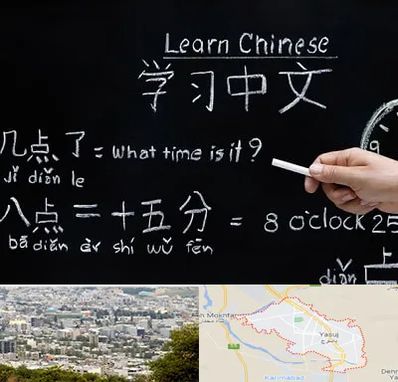 Learn Chinese
学习中文
几点了 = what time is it ?
Jǐ diǎn le
9
八点二十五分 = 8 o'clock 25
bā diǎn èr shí wǔ fēn
diǎn
Mokhtar
Yasuj
یاسوج
Karimabad